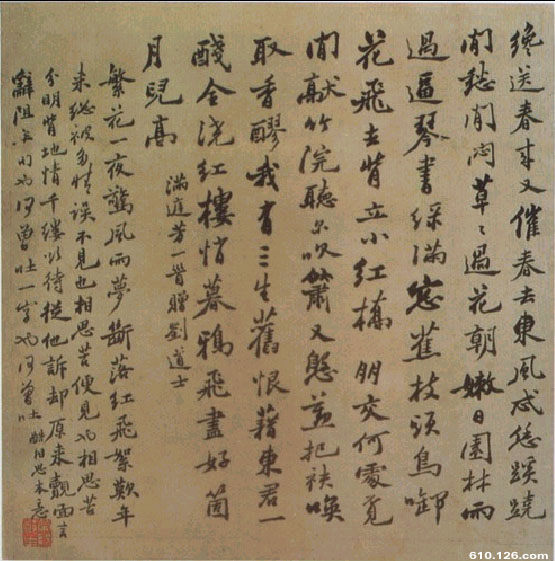 纔送春来又催春去東風忒恁蹊蹺
閒愁閒悶草〻過花朝嫩日園林雨
過遍琴書綠滿窓蕉枝頭鳥啣
花飛去背立小紅橋朋交何處覓
閒竹浣聽尔吹簫又愁把袂喚
取香醪我有三生舊恨藉東君一
醆全澆紅樓悄暮鴉飛盡好箇
月兒高
滿庭芳一首贈劉道士
繁花一夜驚風雨夢斷落紅飛絮歎年
来總被多情誤不見也相思苦便見也相思苦
分明背地情千縷待從他訴却原来覿面
何曾吐一字也何曾吐
610.126.com